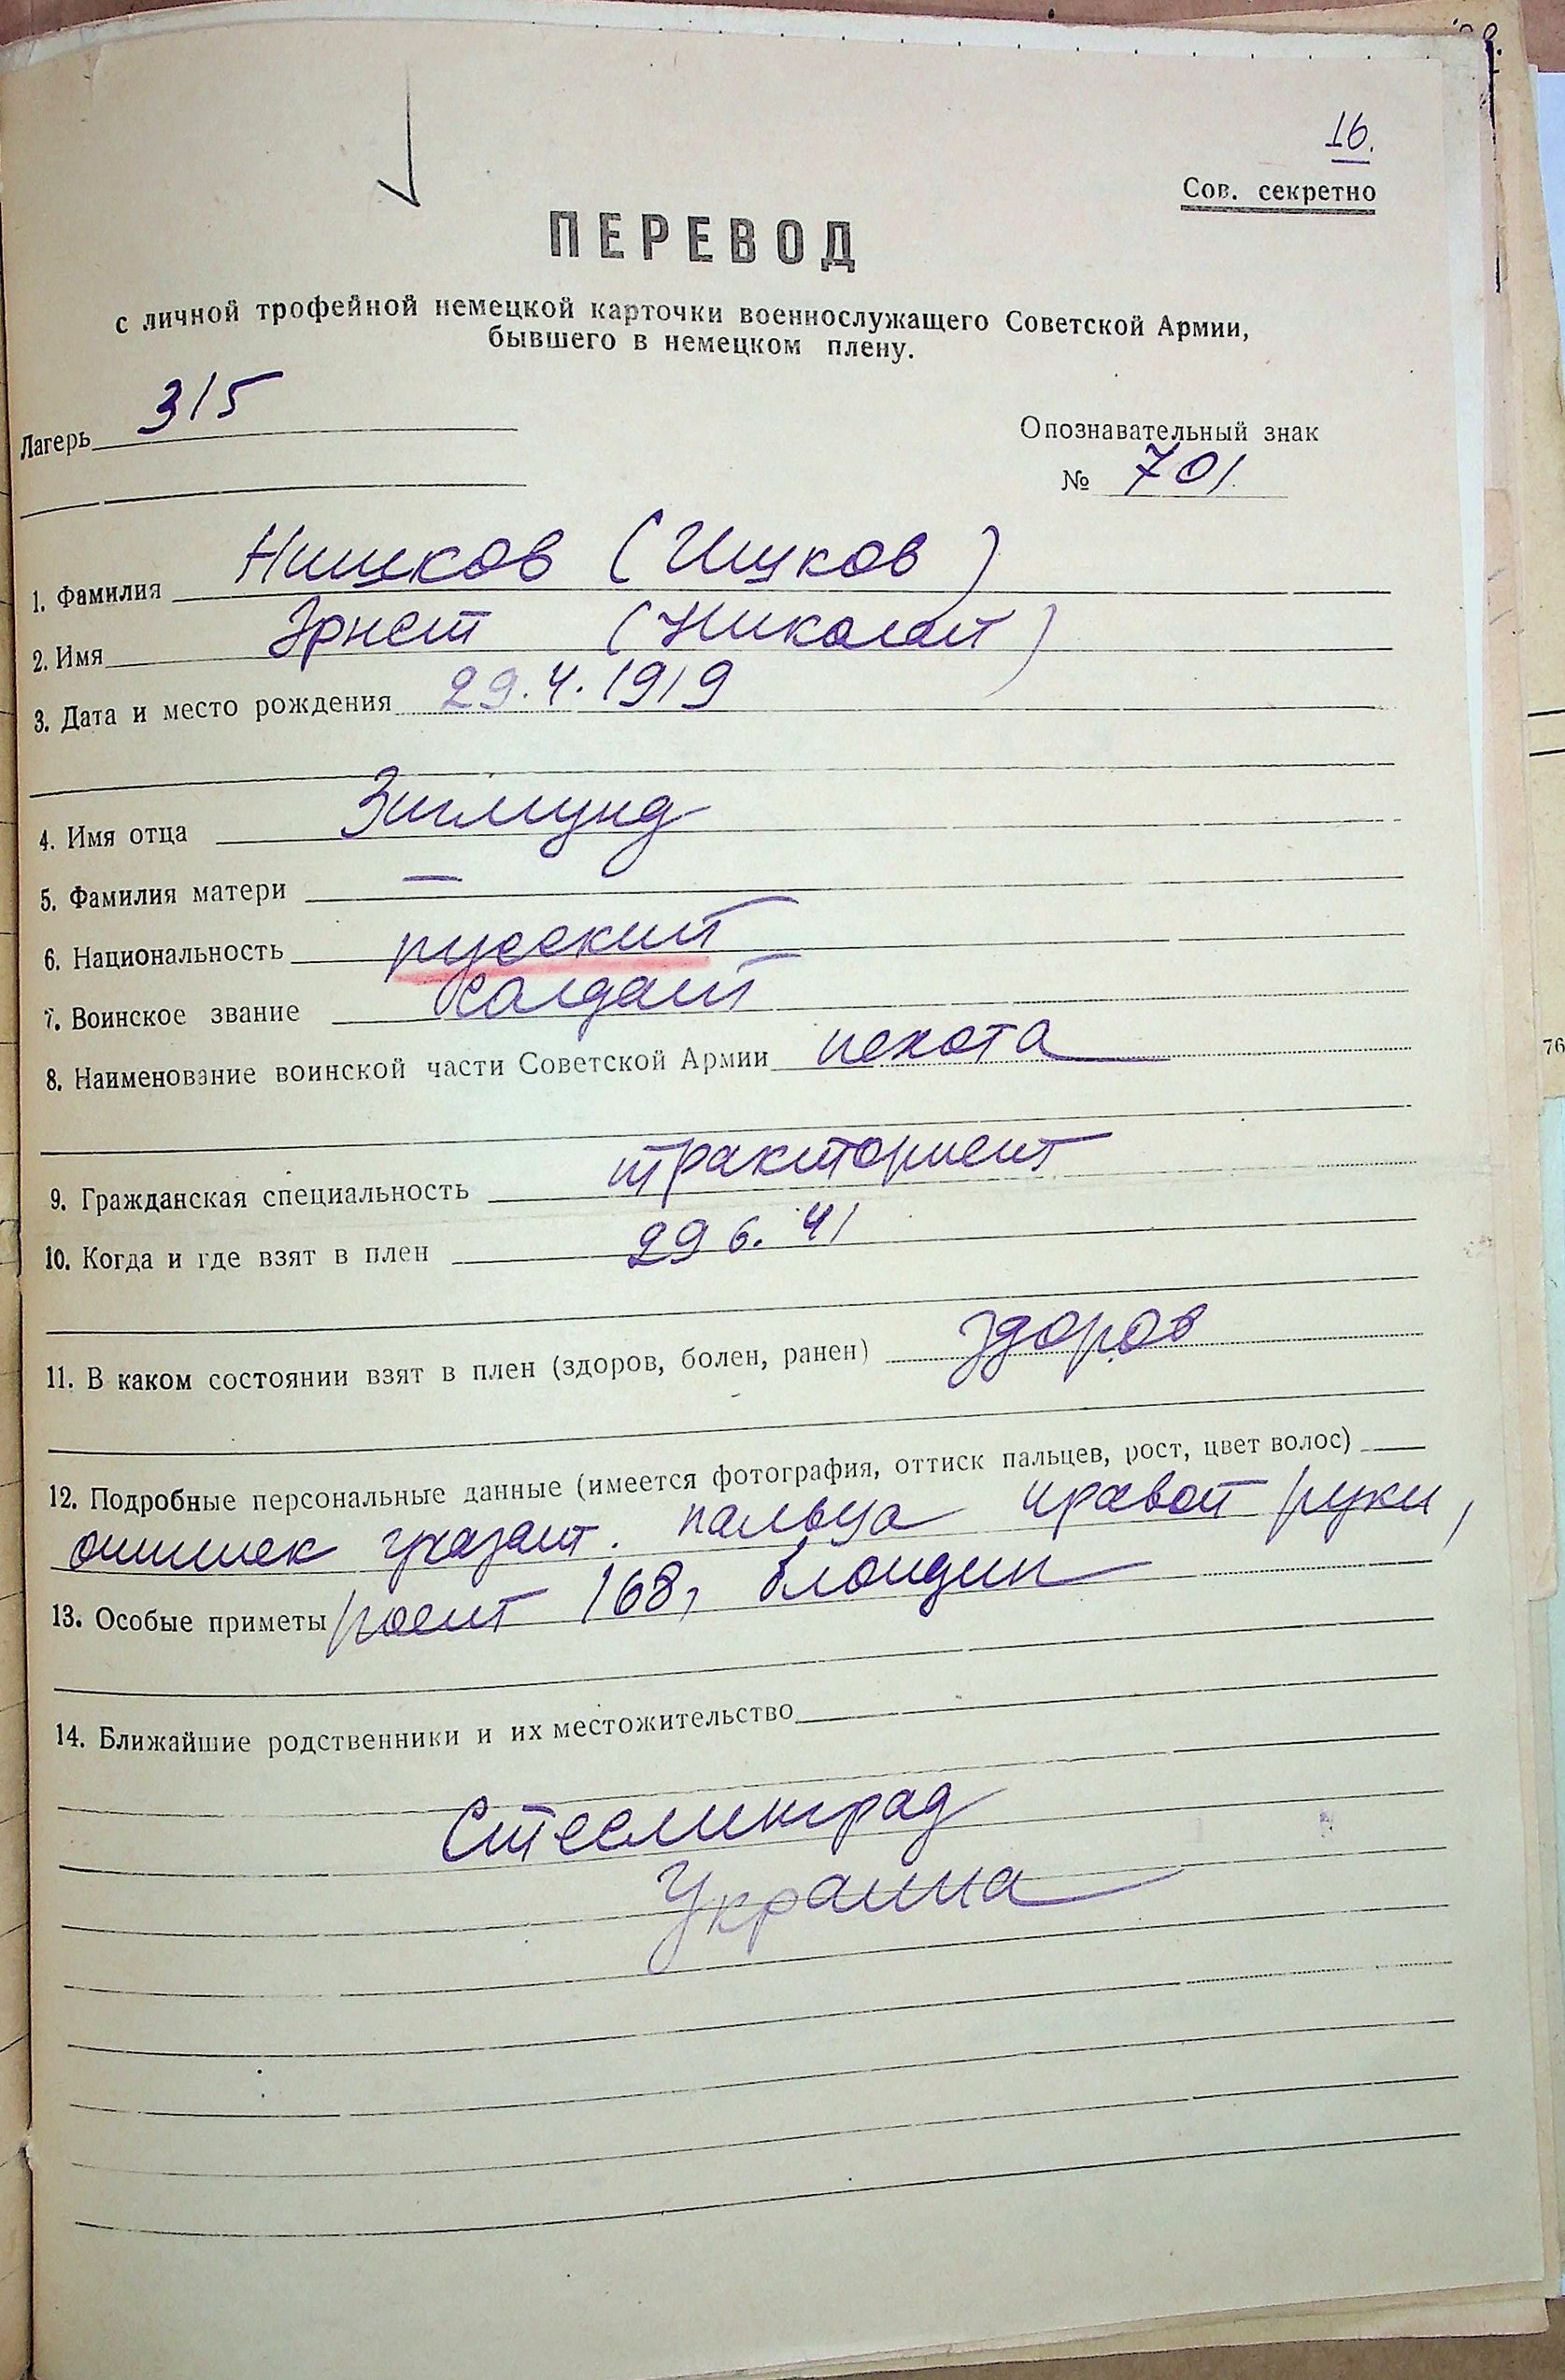 16.
Сов. секретно
ПЕРЕВОД
с личной трофейной немецкой карточки военнослужащего Советской Армии,
бывшего в немецком плену.
Лагерь 315
Опознавательный знак
№ 701.
1. Фамилия Нишков (Ишков)
2. Имя Эрнст (Николай)
3. Дата и место рождения 29.4.1919
4. Имя отца Зигмунд
5. Фамилия матери —
6. Национальность русский
7. Воинское звание солдат
8. Наименование воинской части Советской Армии пехота
9. Гражданская специальность тракторист
10. Когда и где взят в плен 29 6. 41
11. В каком состоянии взят в плен (здоров, болен, ранен) здоров
12. Подробные персональные данные (имеется фотография, оттиск пальцев, рост, цвет волос)
оттиск указат. пальца правой руки,
13. Особые приметы рост 168, блондин
14. Ближайшие родственники и их местожительство
Стеслинград
Украина
76